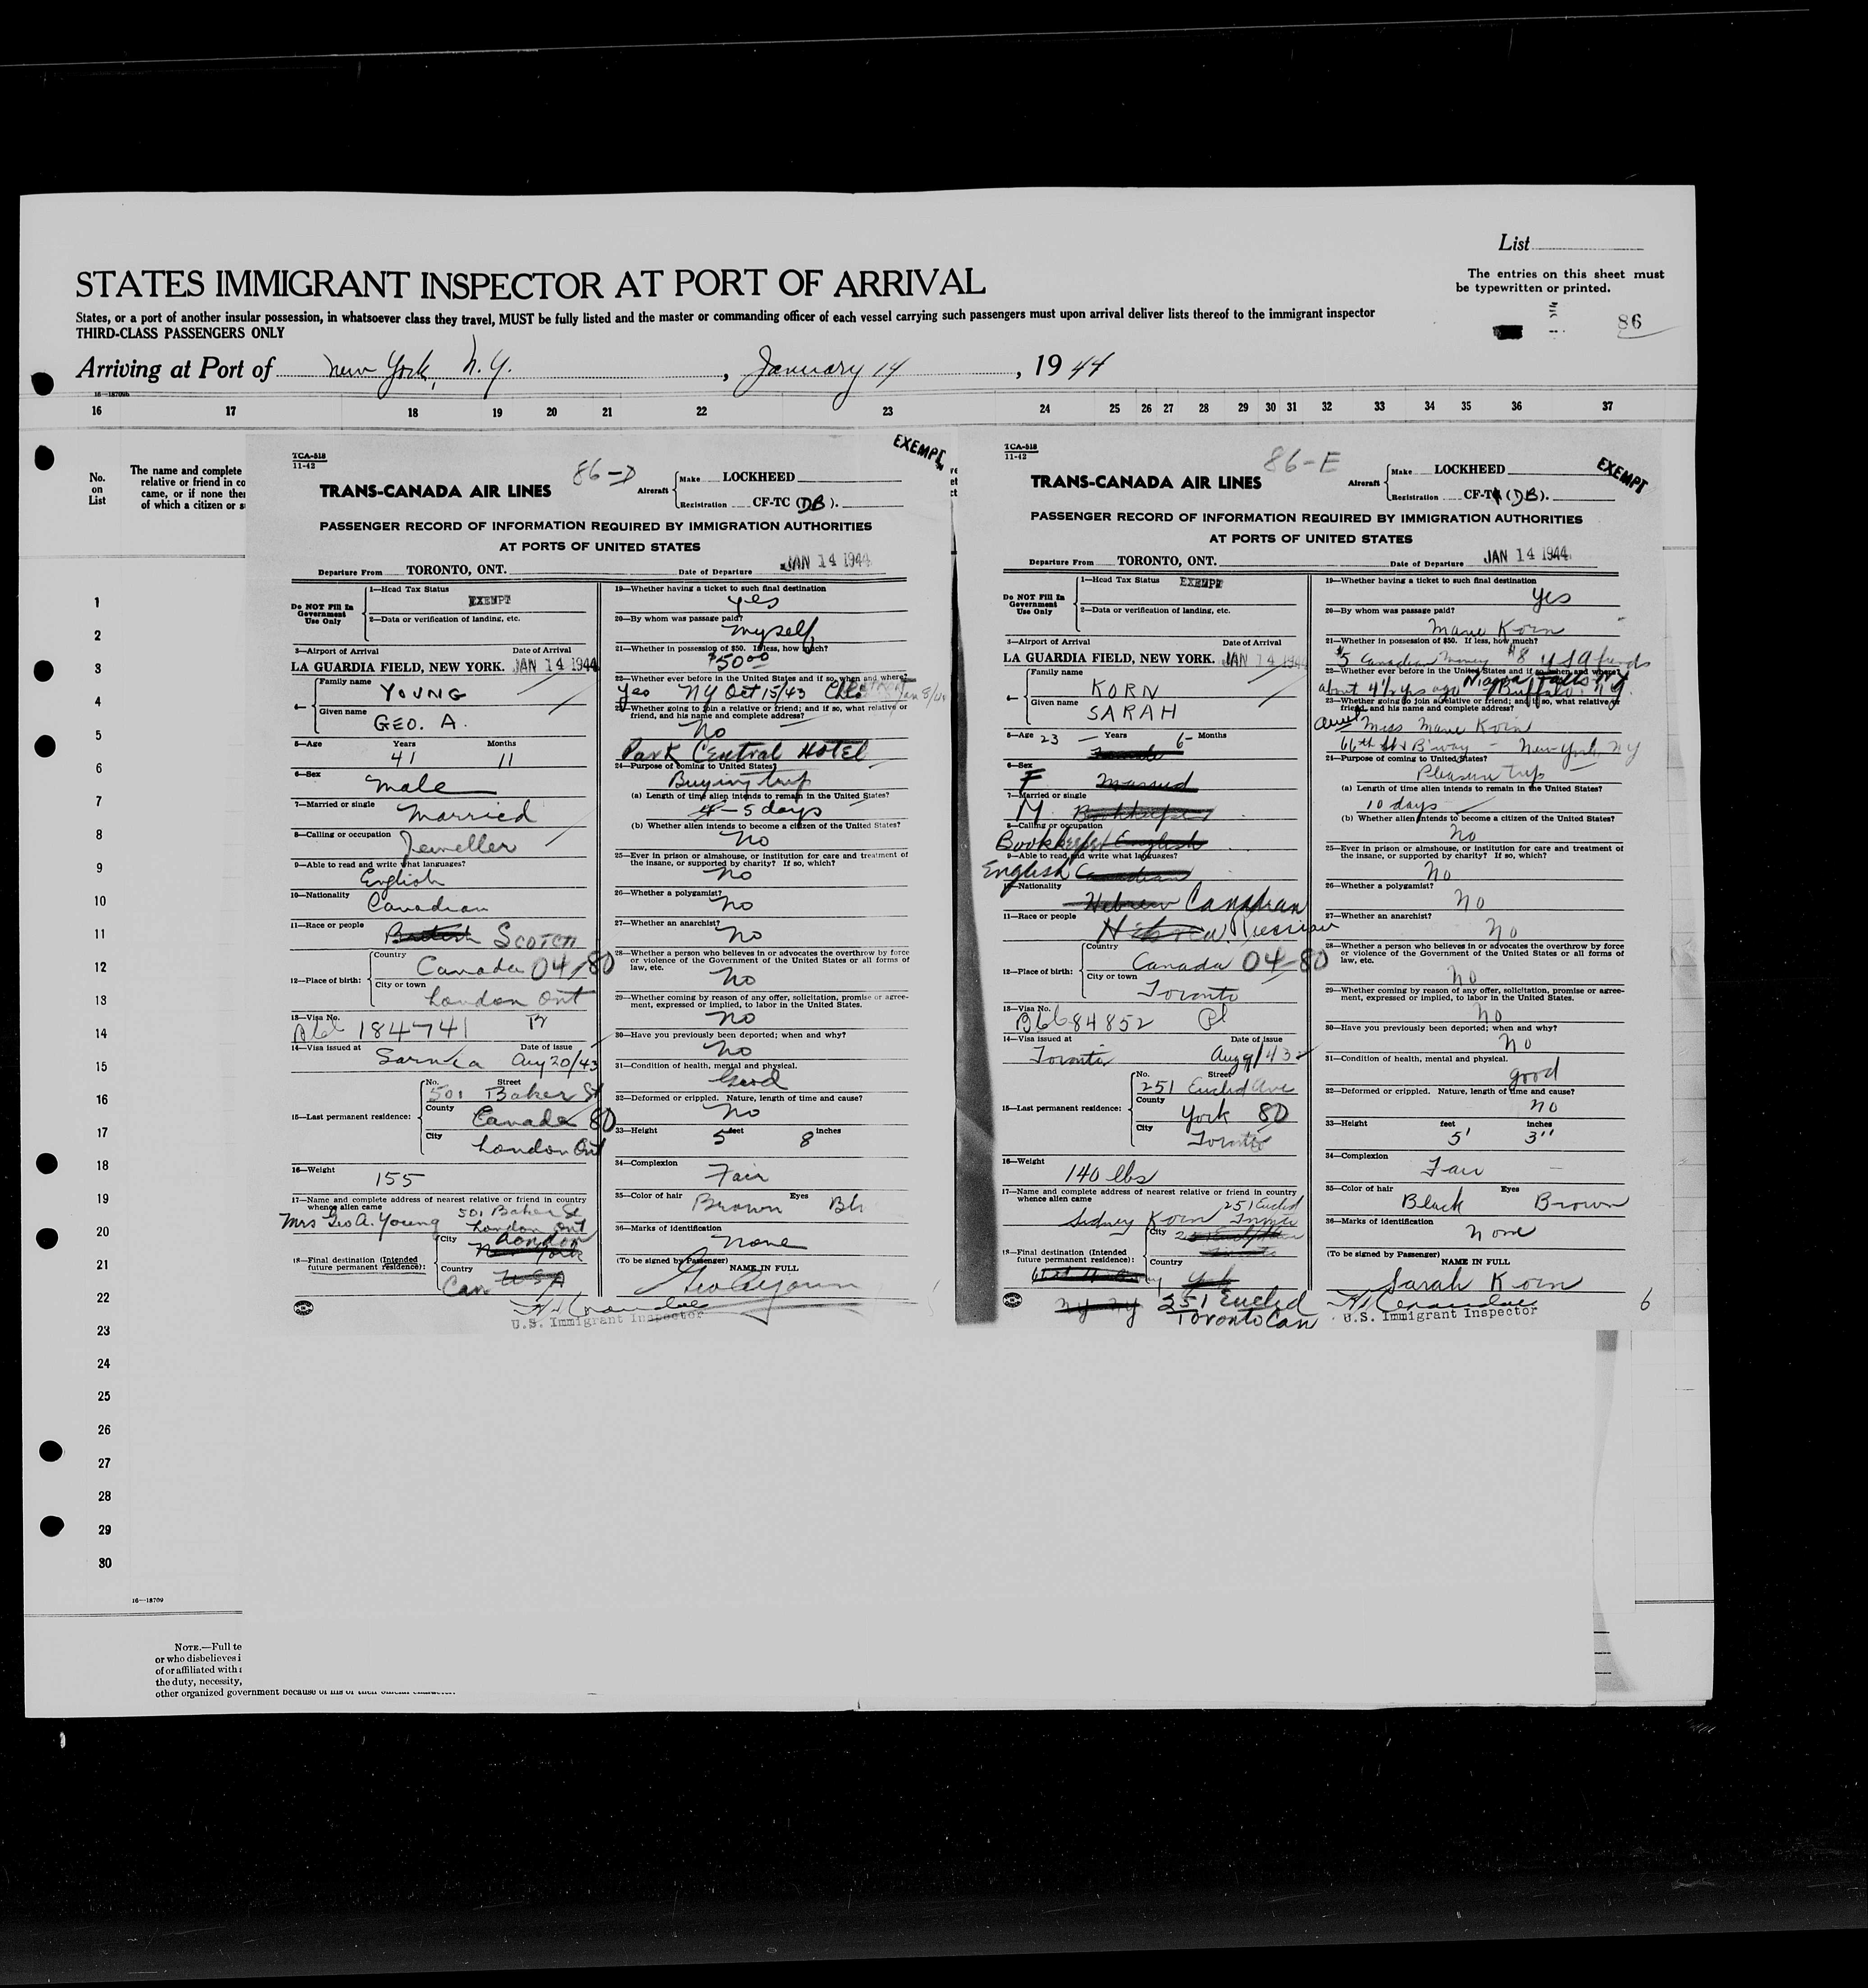 List
STATES IMMIGRANT INSPECTOR AT PORT OF ARRIVAL
The entries on this sheet must
be typewritten or printed.
States, or a port of another insular possession, in whatsoever class they travel, MUST be fully listed and the master or commanding officer of each vessel carrying such passengers must upon arrival deliver lists thereof to the immigrant inspector
THIRD-CLASS PASSENGERS ONLY
86
Arriving at Port of New York, N.Y., January 14, 1944
16 17 18 19 20 21 22 23 24 25 26 27 28 29 30 31 32 33 34 35 36 37
No.
on
List
The name and complete
relative or friend in co
came, or if none ther
of which a citizen or s
1
2
3
4
5
6
7
8
9
10
11
12
13
14
15
16
17
18
19
20
21
22
23
24
25
26
27
28
29
30
16—18709
NOTE.—Full te
or who disbelieves i
of or affiliated with
the duty, necessity,
other organized government because of his or their official character.
TCA-518
11-42
86-D
EXEMPT
TRANS-CANADA AIR LINES
Aircraft
Make LOCKHEED
Registration CF-TC (DB).
PASSENGER RECORD OF INFORMATION REQUIRED BY IMMIGRATION AUTHORITIES
AT PORTS OF UNITED STATES
Departure From TORONTO, ONT. Date of Departure JAN 14 1944
Do NOT Fill In
Government
Use Only
1—Head Tax Status
EXEMPT
2—Data or verification of landing, etc.
3—Airport of Arrival Date of Arrival
LA GUARDIA FIELD, NEW YORK. JAN 14 1944
4—
Family name
YOUNG
Given name
GEO. A.
5—Age Years Months
41 11
6—Sex
male
7—Married or single
Married
8—Calling or occupation
Jeweller
9—Able to read and write what languages?
English
10—Nationality
Canadian
11—Race or people
British SCOTCH
12—Place of birth:
Country
Canada 04/80
City or town
London Ont
13—Visa No.
184741
14—Visa issued at Date of issue
Sarnia Aug 20/43
15—Last permanent residence:
No. Street
501 Baker St
County
Canada 80
City
London Ont
16—Weight
155
17—Name and complete address of nearest relative or friend in country
whence alien came
501 Baker St
Mrs Geo A. Young London Ont
18—Final destination (Intended
future permanent residence):
City
London
New York
Country
Can USA
U.S. Immigrant Inspector
19—Whether having a ticket to such final destination
yes
20—By whom was passage paid?
myself
21—Whether in possession of $50. If less, how much?
$50.00
22—Whether ever before in the United States and if so, when and where?
Yes NY Oct 15/43
23—Whether going to join a relative or friend; and if so, what relative or
friend, and his name and complete address?
No
Park Central Hotel
24—Purpose of coming to United States?
Buying trip
(a) Length of time alien intends to remain in the United States?
4-5 days
(b) Whether alien intends to become a citizen of the United States?
No
25—Ever in prison or almshouse, or institution for care and treatment of
the insane, or supported by charity? If so, which?
No
26—Whether a polygamist?
No
27—Whether an anarchist?
No
28—Whether a person who believes in or advocates the overthrow by force
or violence of the Government of the United States or all forms of
law, etc.
No
29—Whether coming by reason of any offer, solicitation, promise or agree-
ment, expressed or implied, to labor in the United States.
No
30—Have you previously been deported; when and why?
No
31—Condition of health, mental and physical.
Good
32—Deformed or crippled. Nature, length of time and cause?
No
33—Height feet inches
5 8
34—Complexion
Fair
35—Color of hair Eyes
Brown Bl
36—Marks of identification
none
(To be signed by Passenger) NAME IN FULL
Geo A Young
TCA-518
11-42
86-E
EXEMPT
TRANS-CANADA AIR LINES
Aircraft
Make LOCKHEED
Registration CF-T (DB).
PASSENGER RECORD OF INFORMATION REQUIRED BY IMMIGRATION AUTHORITIES
AT PORTS OF UNITED STATES
Departure From TORONTO, ONT. Date of Departure JAN 14 1944
Do NOT Fill In
Government
Use Only
1—Head Tax Status
EXEMPT
2—Data or verification of landing, etc.
3—Airport of Arrival Date of Arrival
LA GUARDIA FIELD, NEW YORK. JAN 14 1944
4—
Family name
KORN
Given name
SARAH
5—Age 23 Years 6 Months
Female
6—Sex
F Married
7—Married or single
M Bookkeeper
8—Calling or occupation
Bookkeeper English
9—Able to read and write what languages?
English Canadian
10—Nationality
Hebrew Canadian
11—Race or people
Hebrew Russian
12—Place of birth:
Country
Canada 04-80
City or town
Toronto
13—Visa No.
B6684852
14—Visa issued at Date of issue
Toronto Aug 9/43
15—Last permanent residence:
No. Street
251 Euclid Ave
County
York 80
City
Toronto
16—Weight
140 lbs
17—Name and complete address of nearest relative or friend in country
whence alien came
251 Euclid
Sidney Korn Toronto
18—Final destination (Intended
future permanent residence):
City
Country
York
NY NY 251 Euclid
Toronto Can
U.S. Immigrant Inspector
19—Whether having a ticket to such final destination
yes
20—By whom was passage paid?
Marie Korn
21—Whether in possession of $50. If less, how much?
$5 Canadian Money $8 USA funds
22—Whether ever before in the United States and if so, when and where?
about 4½ yrs ago Niagara Falls NY Buffalo. N.Y.
23—Whether going to join a relative or friend; and if so, what relative or
friend, and his name and complete address?
Aunt Miss Marie Korn
66th St & B'way - New York, NY
24—Purpose of coming to United States?
Pleasure trip
(a) Length of time alien intends to remain in the United States?
10 days
(b) Whether alien intends to become a citizen of the United States?
No
25—Ever in prison or almshouse, or institution for care and treatment of
the insane, or supported by charity? If so, which?
No
26—Whether a polygamist?
No
27—Whether an anarchist?
No
28—Whether a person who believes in or advocates the overthrow by force
or violence of the Government of the United States or all forms of
law, etc.
No
29—Whether coming by reason of any offer, solicitation, promise or agree-
ment, expressed or implied, to labor in the United States.
No
30—Have you previously been deported; when and why?
No
31—Condition of health, mental and physical.
good
32—Deformed or crippled. Nature, length of time and cause?
no
33—Height feet inches
5' 3"
34—Complexion
Fair
35—Color of hair Eyes
Black Brown
36—Marks of identification
none
(To be signed by Passenger) NAME IN FULL
Sarah Korn
6